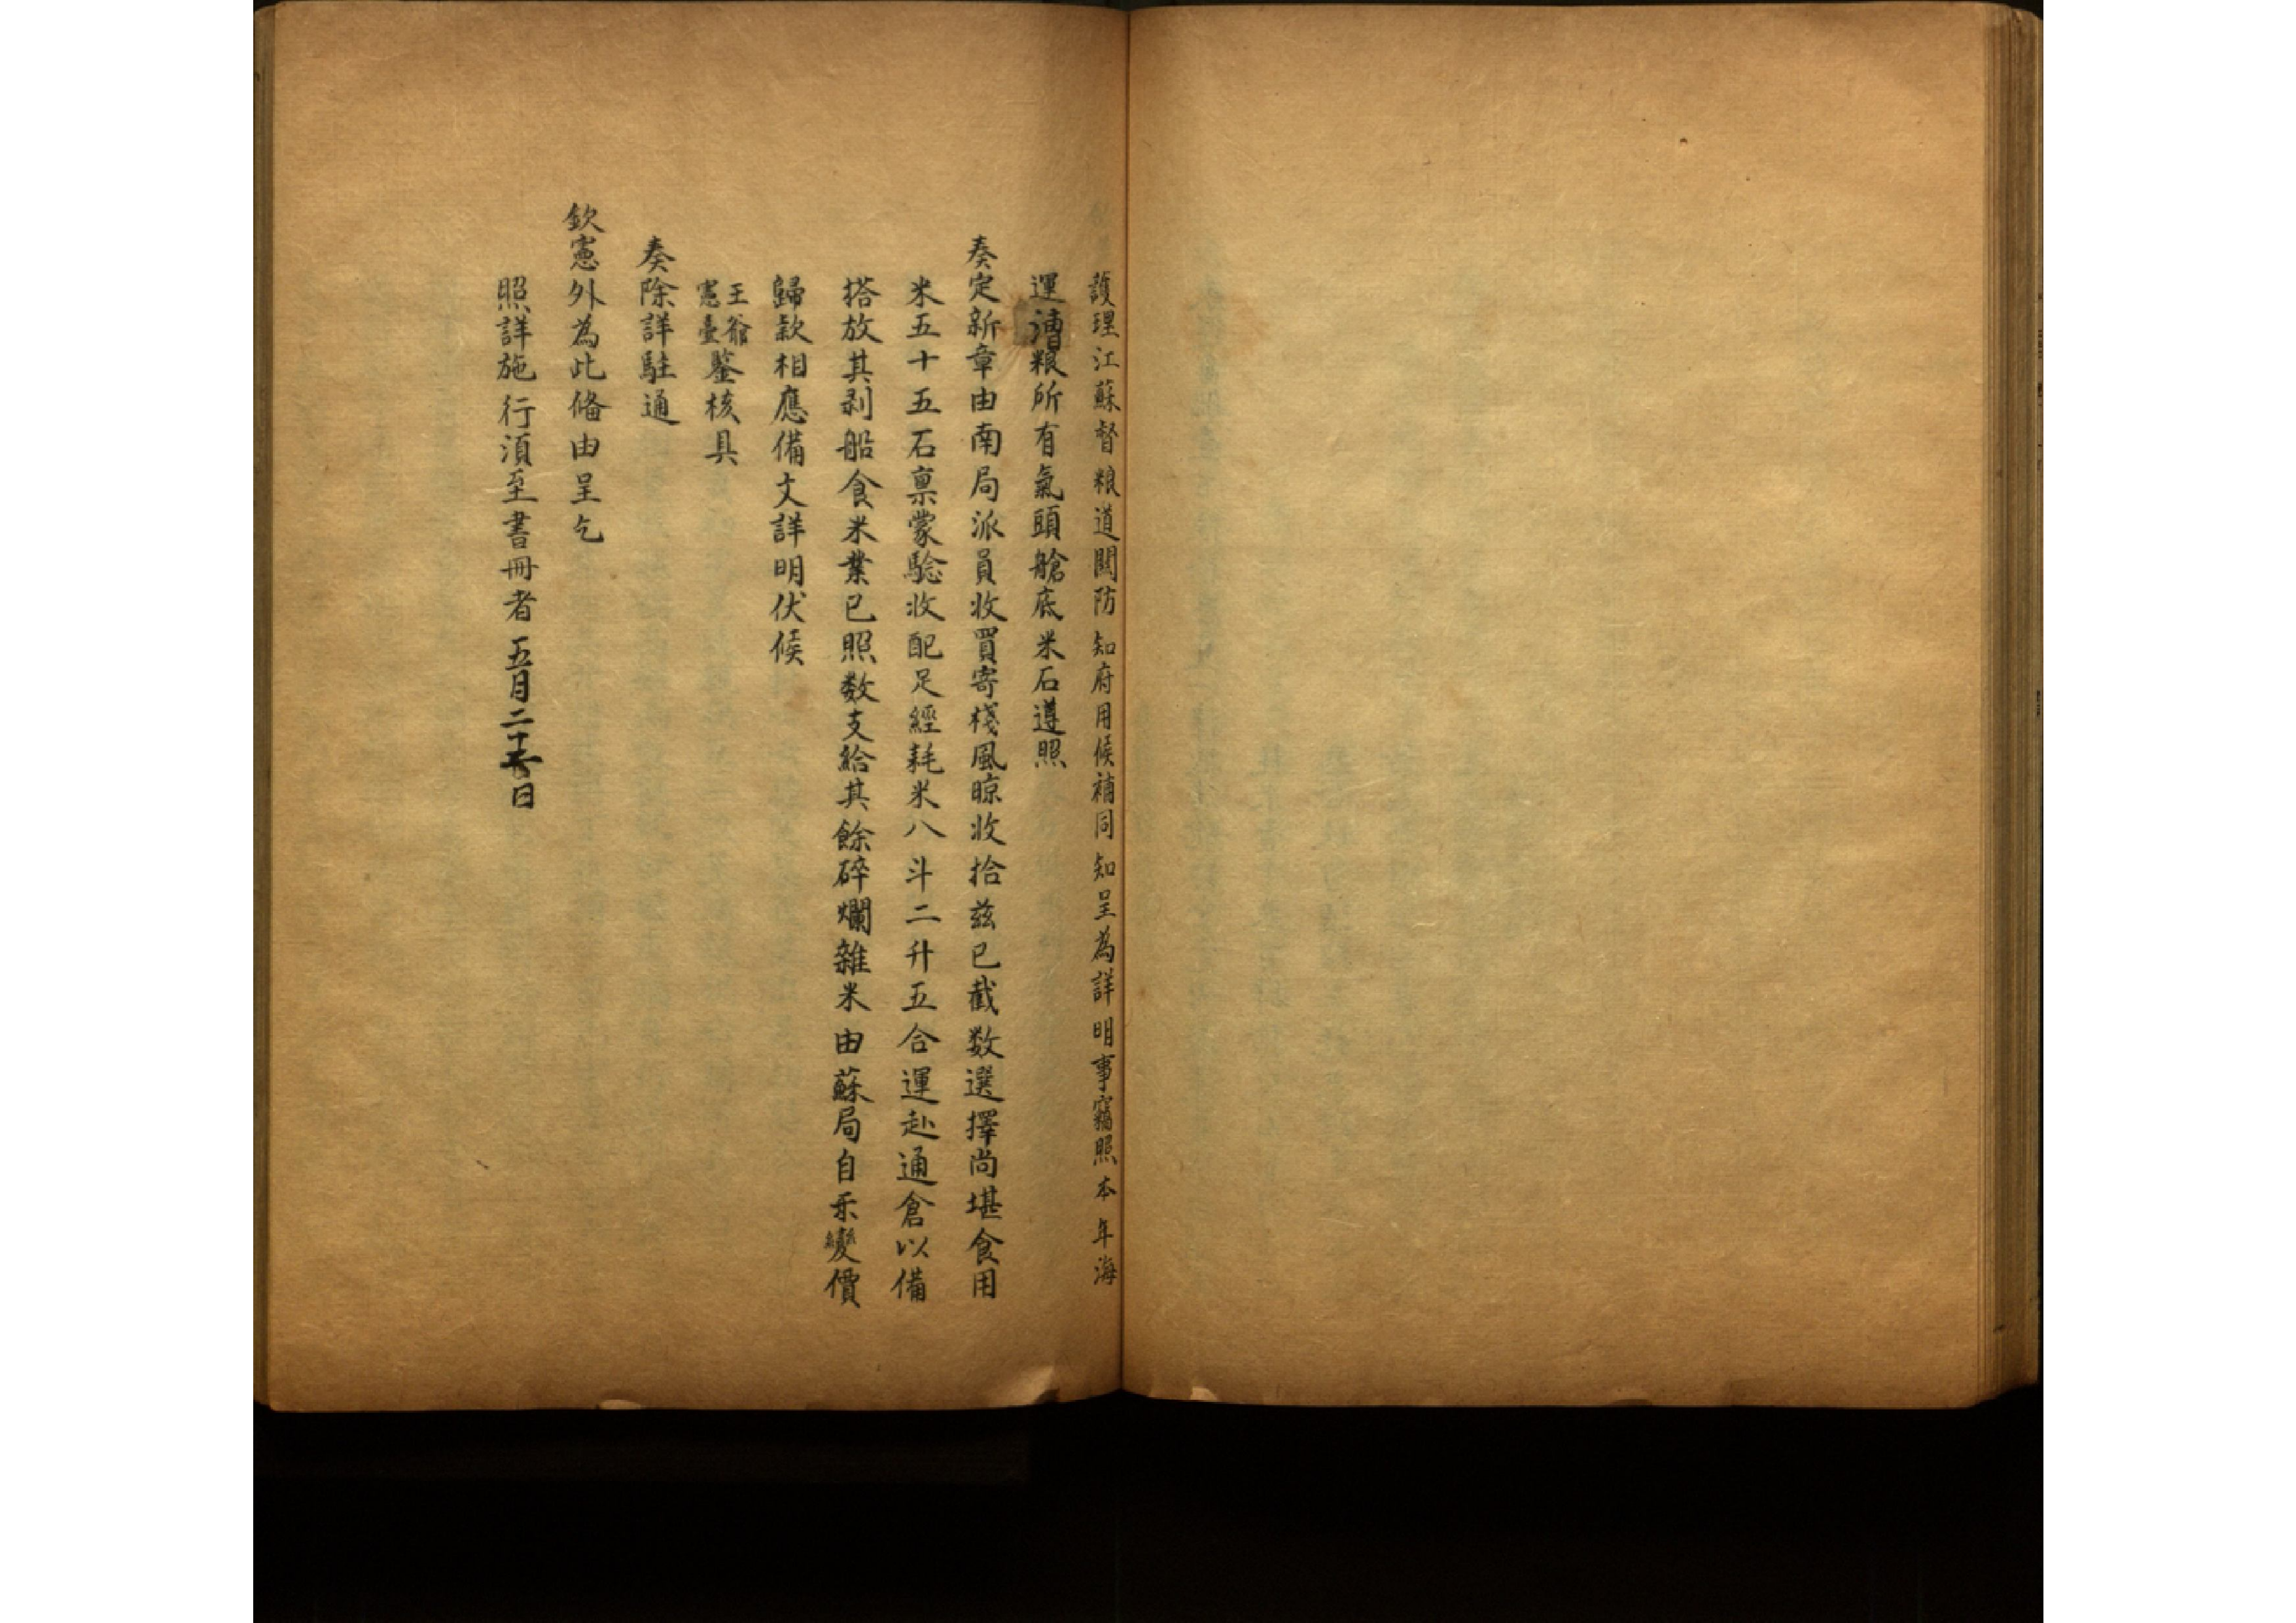 護理江蘇督粮道關防知府用候補同知呈為詳明事竊照本年海
運漕粮所有氣頭艙底米石遵照
奏定新章由南局派員收買寄棧風晾收拾茲已截数選擇尚堪食用
米五十五石稟蒙驗收配足經耗米八斗二升五合運赴通倉以備
搭放其剥船食米業已照数支給其餘碎爛雜米由蘇局自行變價
歸欵相應備文詳明伏候
王爺
憲臺鑒核具
奏除詳駐通
欽憲外為此偹由呈乞
照詳施行須至書冊者五月二十日